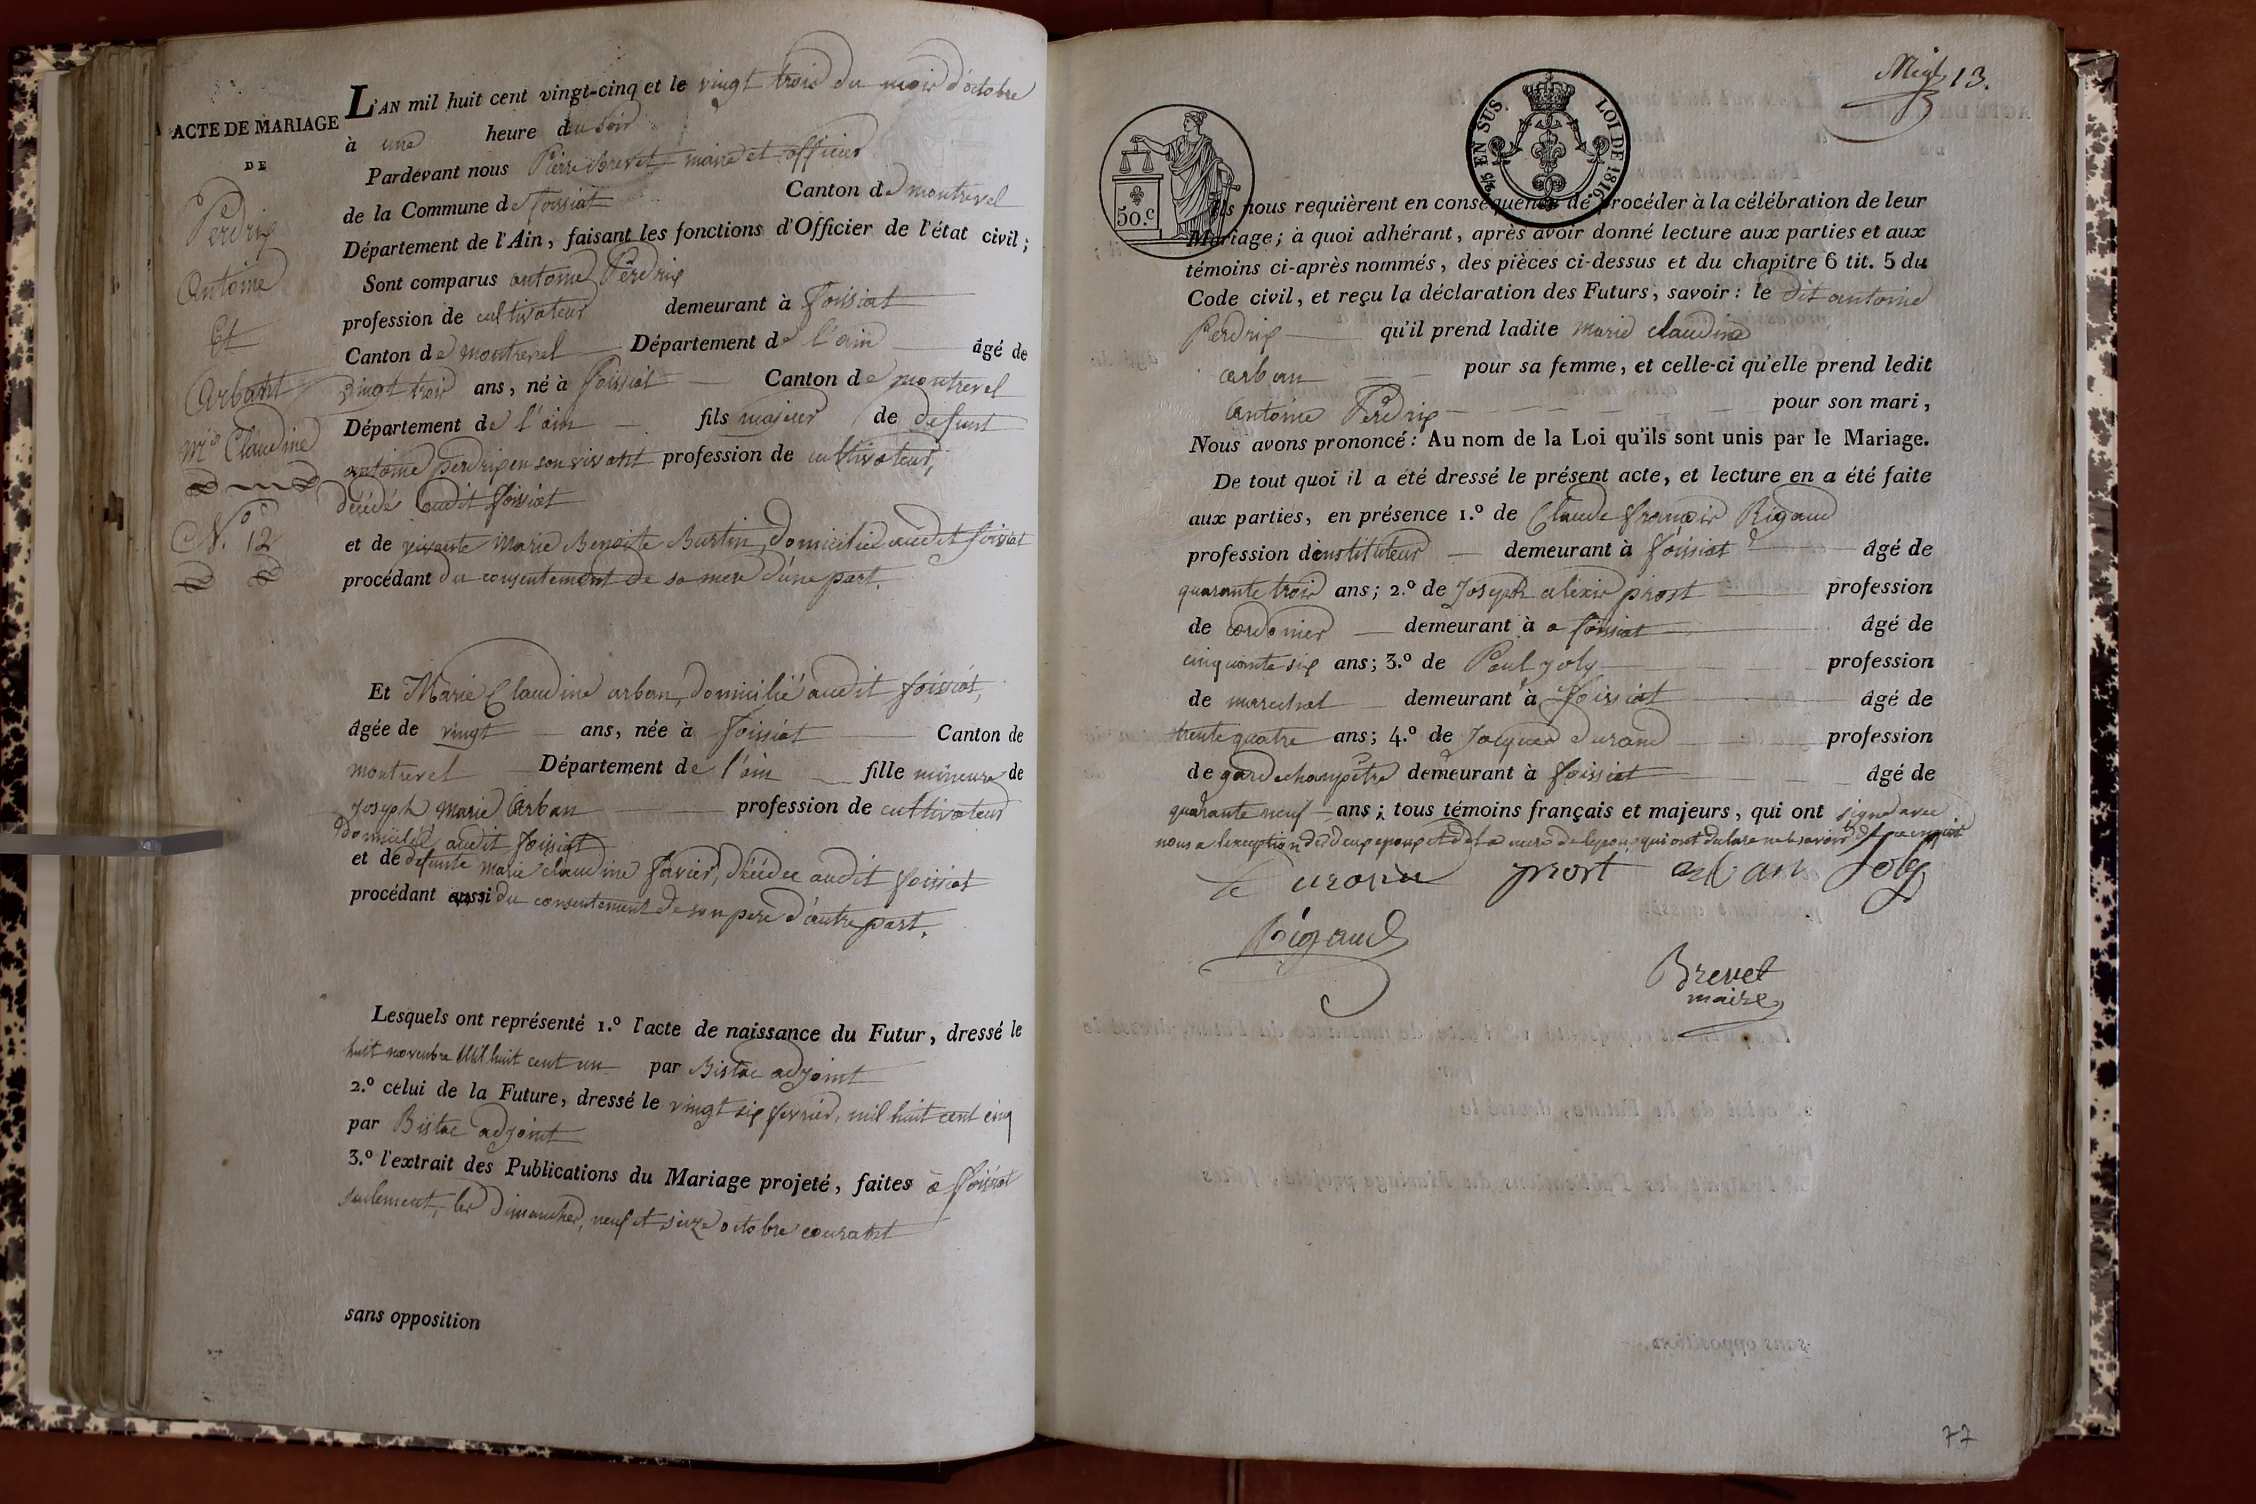 ACTE DE MARIAGE
DE
Perdrix
Antoine
Et
Arbant
Mie Claudine
N.º 12
L'AN mil huit cent vingt-cinq et le vingt trois du mois d'octobre
à une heure du soir
Pardevant nous Pierre Brevet maire et officier
de la Commune de foissiat Canton de montrevel
Département de l'Ain, faisant les fonctions d'Officier de l'état civil;
Sont comparus antoine Perdrix
profession de cultivateur demeurant à foissiat
Canton de montrevel Département de l'ain âgé de
vingt trois ans, né à foissiat Canton de montrevel
Département de l'ain fils majeur de defunt
antoine perdrix en son vivant profession de cultivateur,
décédé audit foissiat
et de vivante Marie Benoite Burtin, domiciliée audit foissiat
procédant du consentement de sa mere d'une part.
Et Marie Claudine arban, domicilié audit foissiat,
âgée de vingt ans, née à foissiat Canton de
montrevel Département de l'ain fille mineure de
Joseph Marie Arban profession de cultivateur
domicilié audit foissiat
et de defunte marie claudine favier, décédée audit foissiat
procédant aussi du consentement de son pere d'autre part.
Lesquels ont représenté 1.º l'acte de naissance du Futur, dressé le
huit novembre Mil huit cent un par Bistac adjoint
2.º celui de la Future, dressé le vingt six fevrier, mil huit cent cinq
par Bistac adjoint
3.º l'extrait des Publications du Mariage projeté, faites à foissiat
seulement, les Dimanches, neuf et seize octobre courant
sans opposition
13.
50.c
2/5 EN SUS. LOI DE 1816.
Ils nous requièrent en conséquence de procéder à la célébration de leur
Mariage; à quoi adhérant, après avoir donné lecture aux parties et aux
témoins ci-après nommés, des pièces ci-dessus et du chapitre 6 tit. 5 du
Code civil, et reçu la déclaration des Futurs, savoir: le dit antoine
Perdrix qu'il prend ladite marie claudine
arban pour sa femme, et celle-ci qu'elle prend ledit
antoine Perdrix pour son mari,
Nous avons prononcé: Au nom de la Loi qu'ils sont unis par le Mariage.
De tout quoi il a été dressé le présent acte, et lecture en a été faite
aux parties, en présence 1.º de Claude françois Rigaud
profession d'instituteur demeurant à foissiat âgé de
quarante trois ans; 2.º de Joseph alexis prost profession
de cordonier demeurant à a foissiat âgé de
cinquante six ans; 3.º de Paul joly profession
de marechal demeurant à foissiat âgé de
trente quatre ans; 4.º de Jacques durand profession
de garde champêtre demeurant à foissiat âgé de
quarante neuf ans; tous témoins français et majeurs, qui ont signé avec
nous a l'exception des deux epoux et de la mere de lepoux qui ont declare ne le savoir de ce enquis
prost arban Joly
Rigaud
Brevet
maire
77